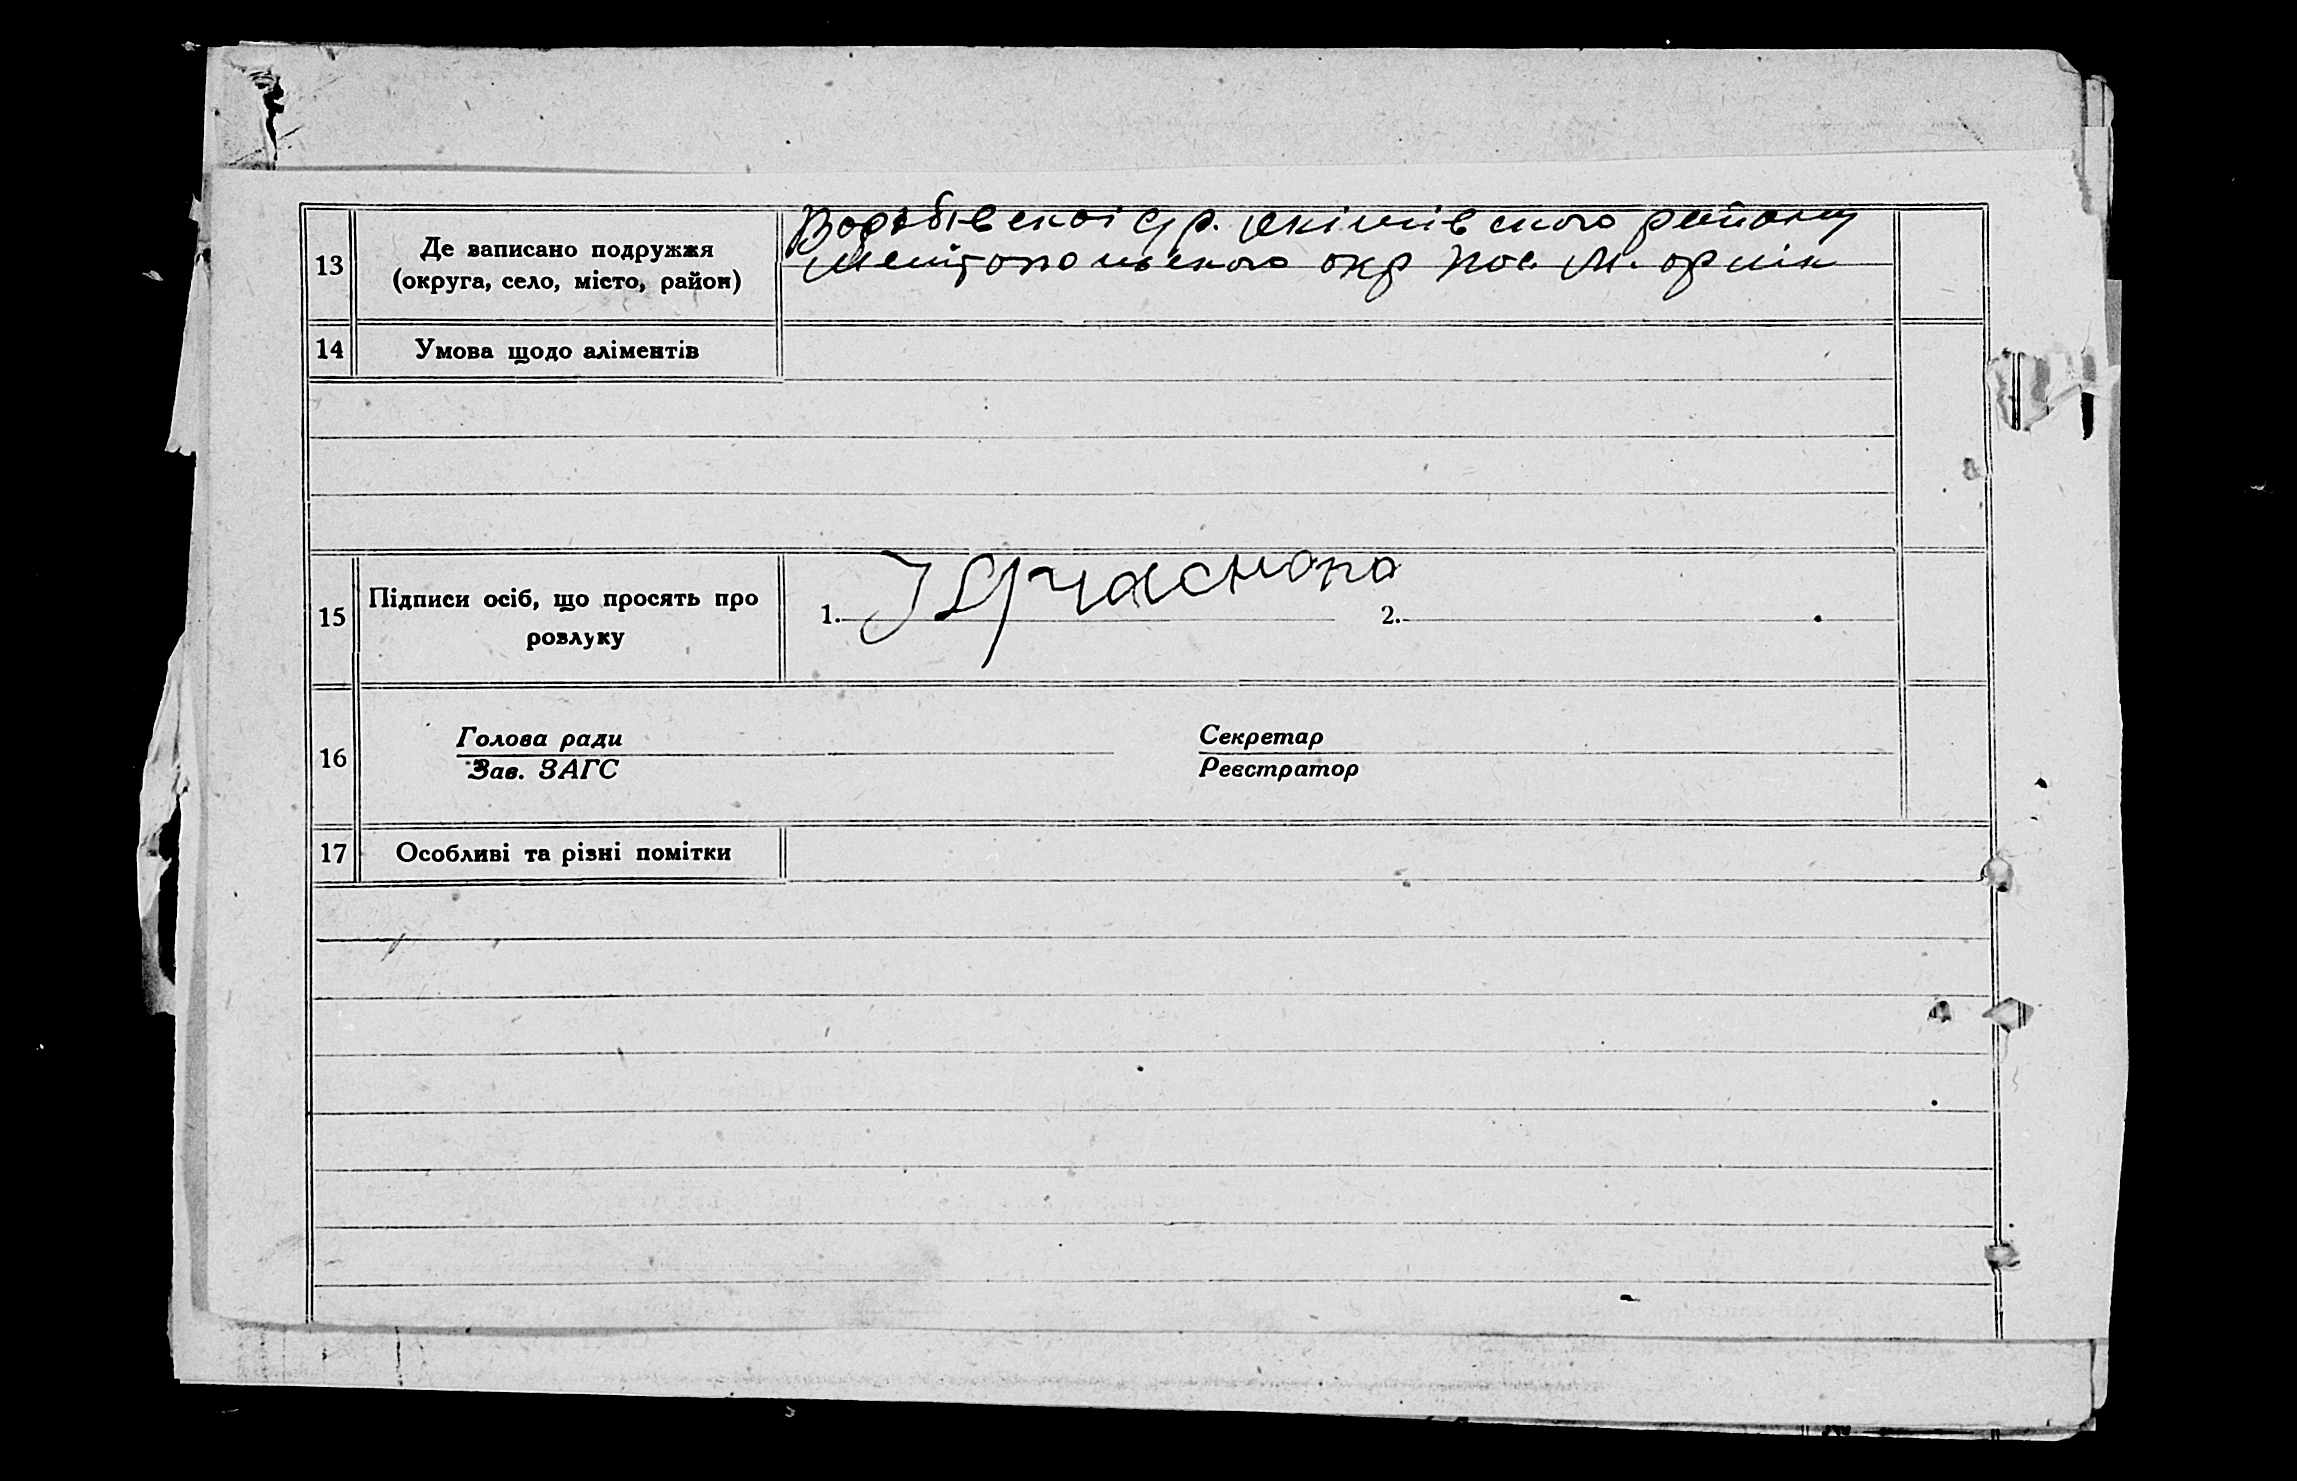 13 Де записано подружжя
(округа, село, місто, район)
Воробівскоі С/р. Якімівського району
Мелітопольского окр пос.
14 Умова щодо аліментів
15 Підписи осіб, що просять про
розлуку
1. 2.
16 Голова ради Секретар
Зав. ЗАГС Реєстратор
17 Особливі та різні помітки